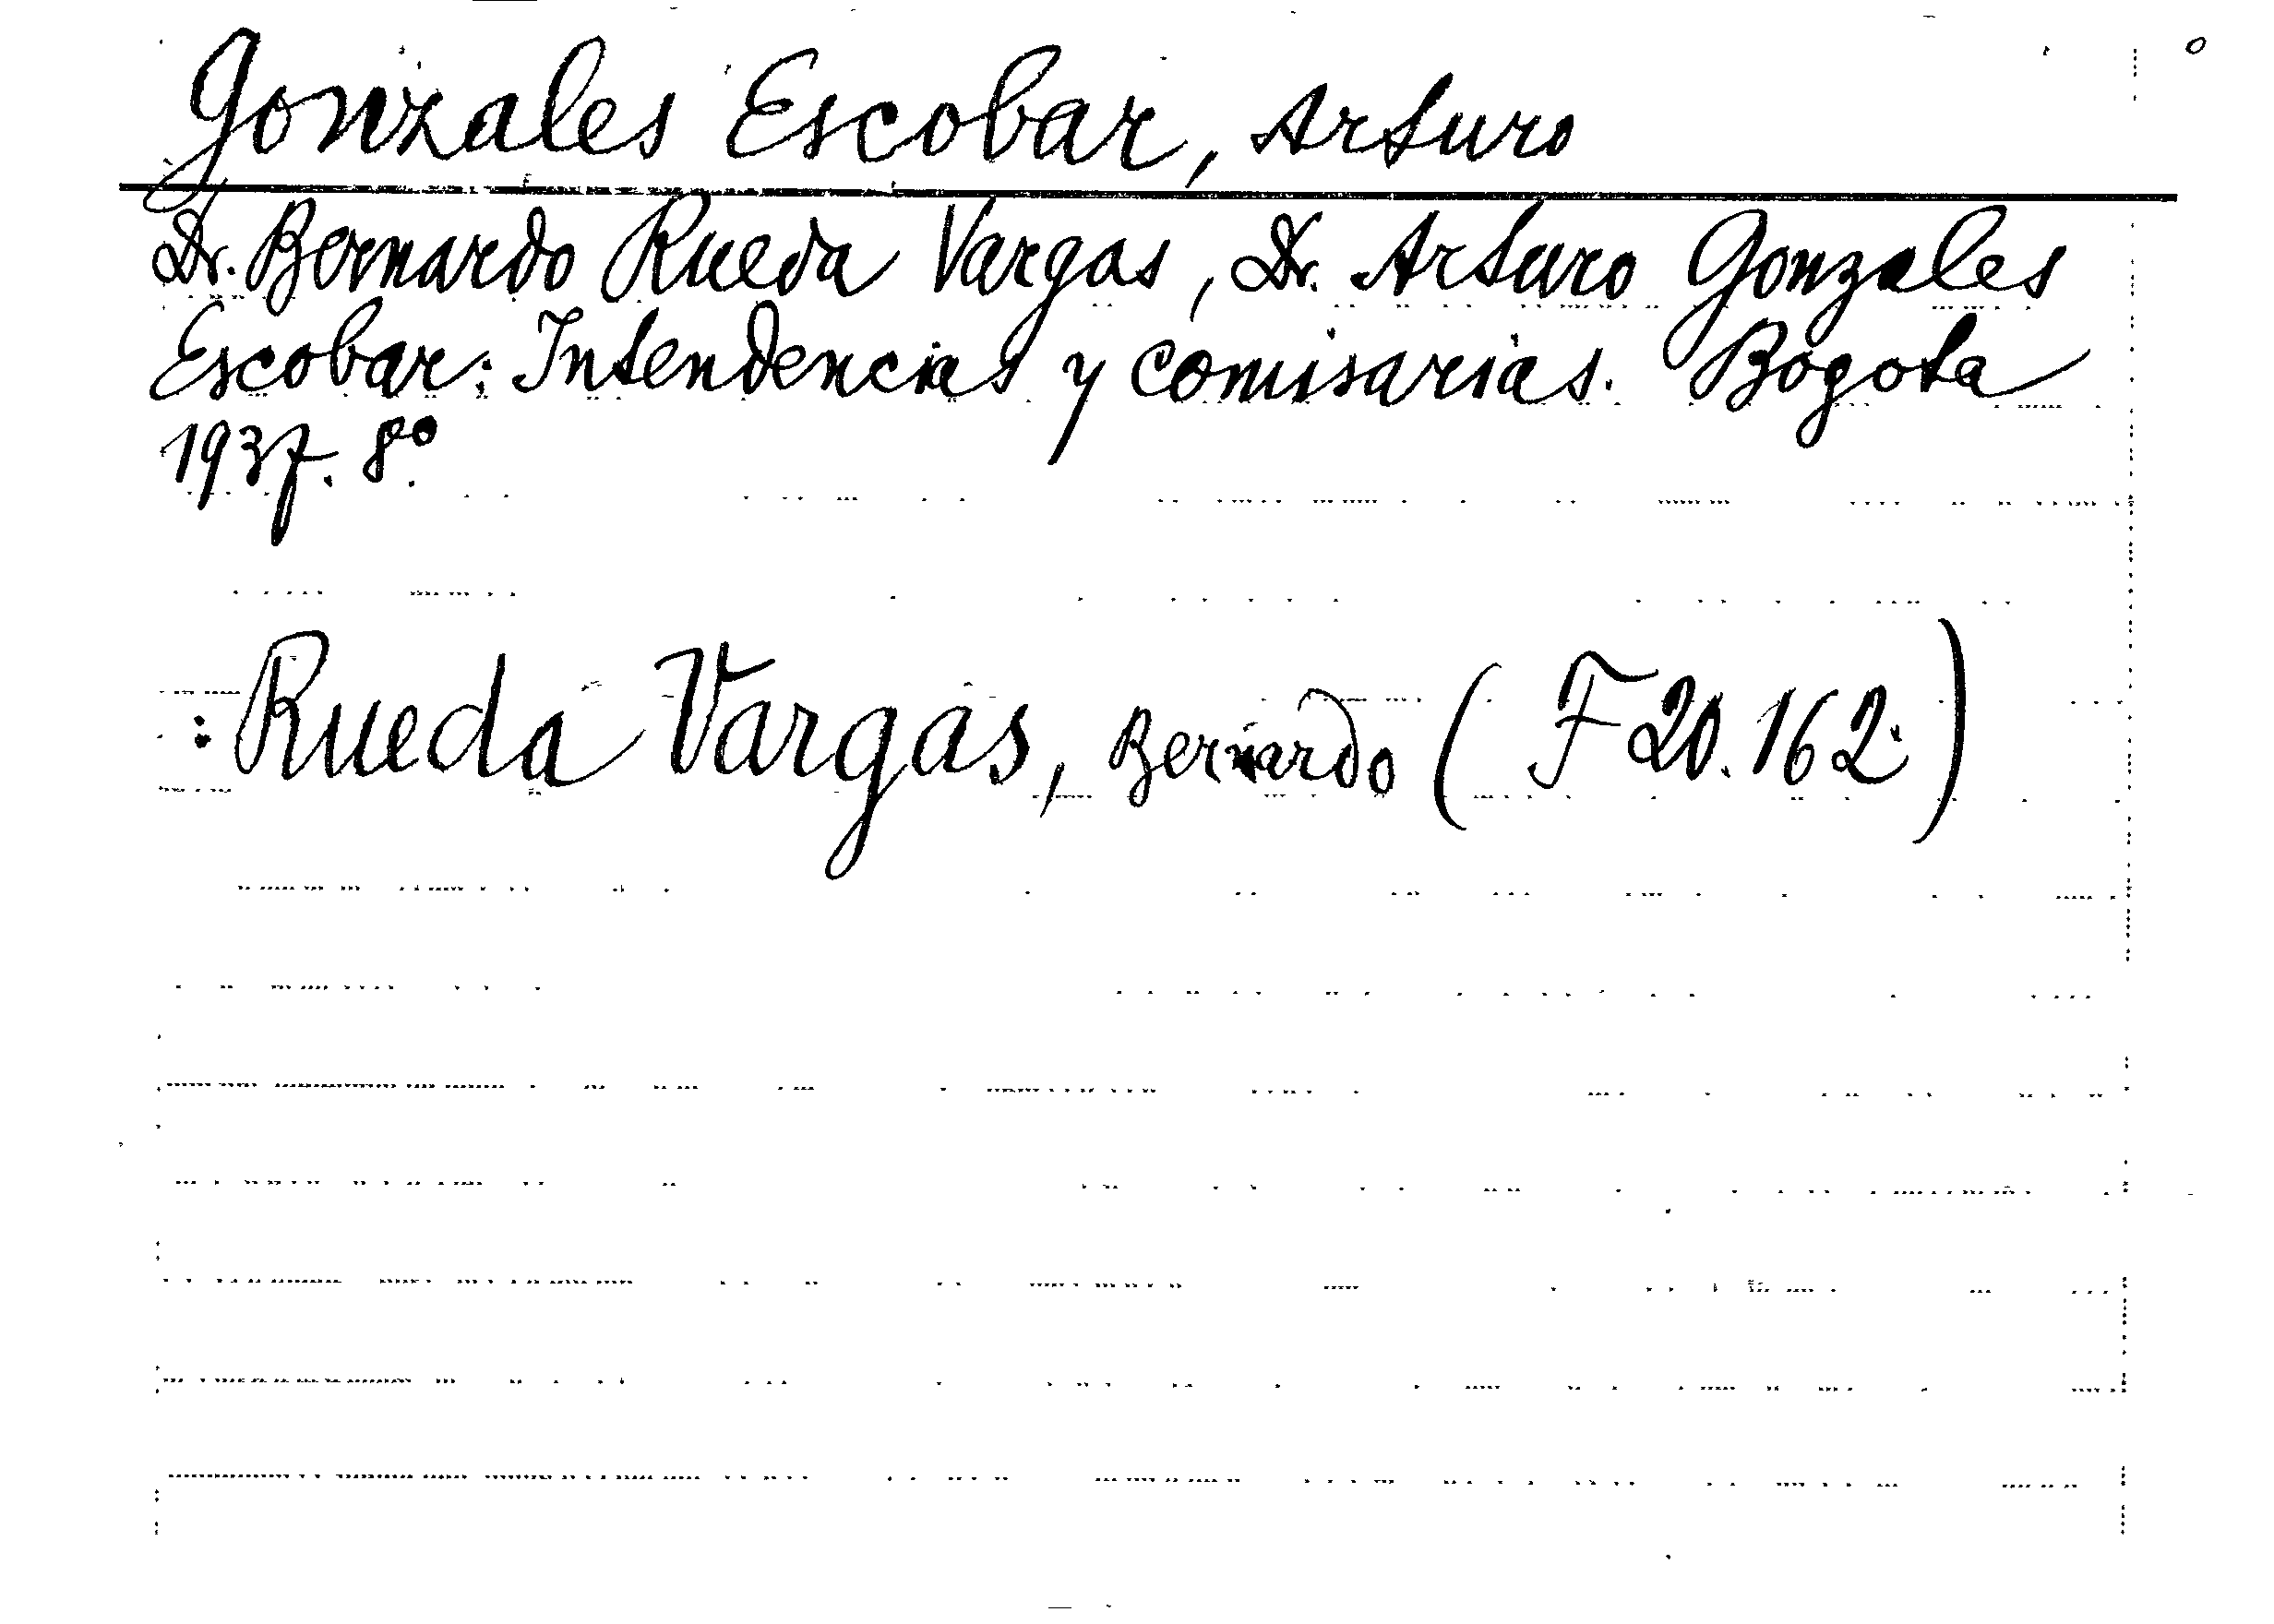 Gonzales Escobar, Arturo
Dr. Bernardo Rueda Vargas, Dr. Arturo Gonzales
Escobar: Intendencias y comisarias. Bogota
1937. 8º.
: Rueda Vargas, Bernardo (F 20.162.)